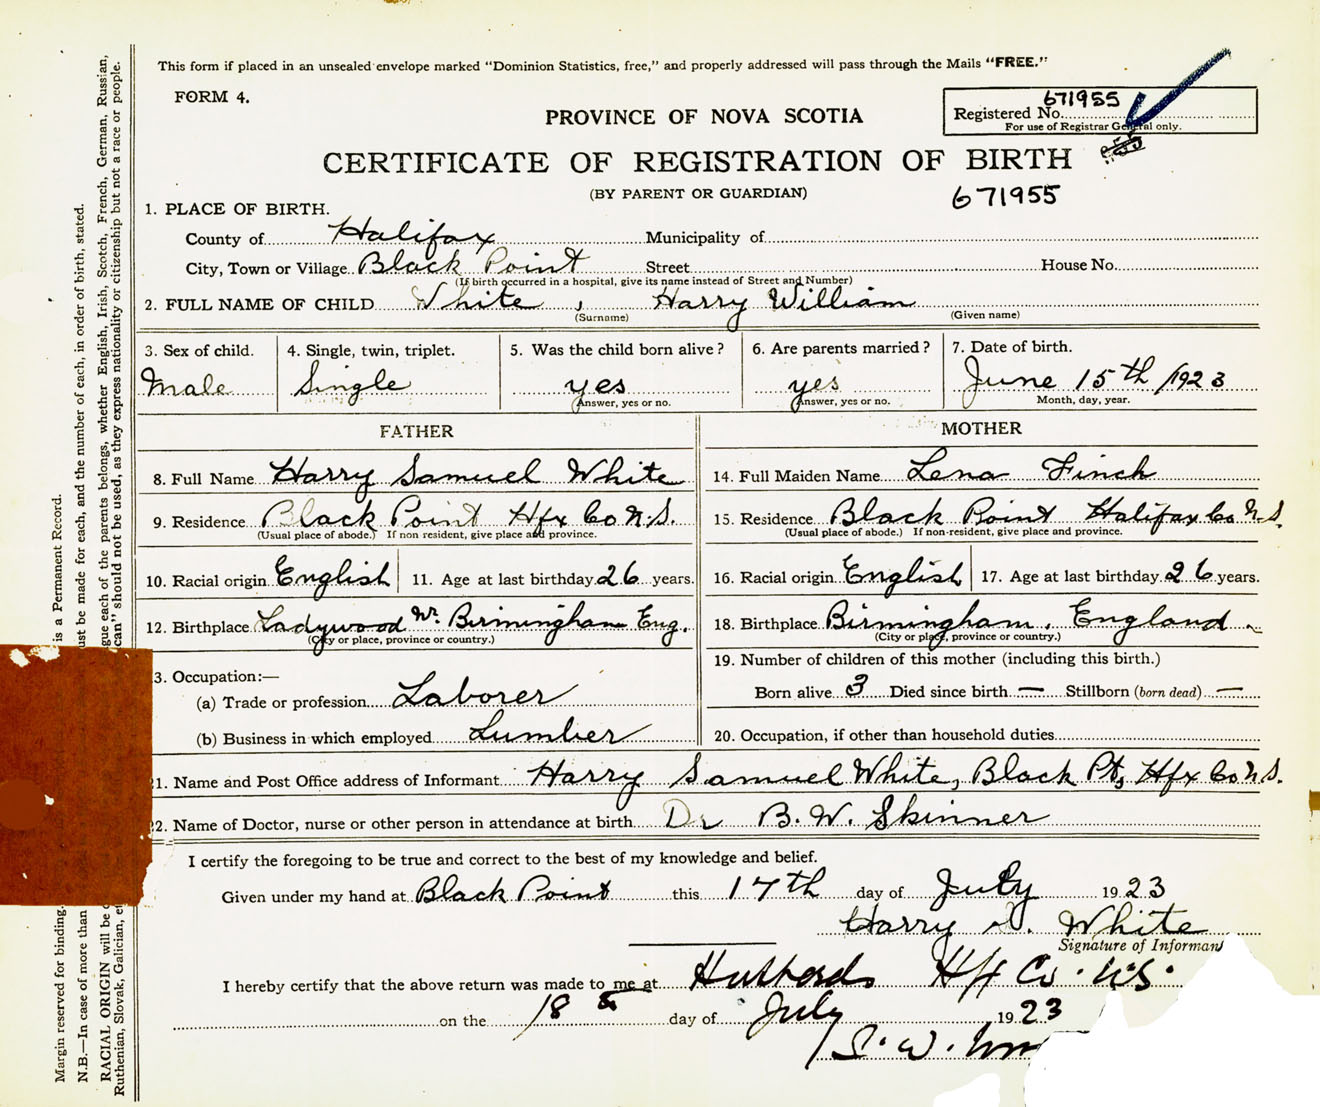 This form if placed in an unsealed envelope marked "Dominion Statistics, free," and properly addressed will pass through the Mails "FREE."
FORM 4.
671955
Registered No.
For use of Registrar General only.
PROVINCE OF NOVA SCOTIA
CERTIFICATE OF REGISTRATION OF BIRTH
(BY PARENT OR GUARDIAN)
671955
1. PLACE OF BIRTH.
County of Halifax Municipality of
City, Town or Village Black Point Street House No.
(If birth occurred in a hospital, give its name instead of Street and Number)
2. FULL NAME OF CHILD White, Harry William
(Surname) (Given name)
3. Sex of child. 4. Single, twin, triplet. 5. Was the child born alive? 6. Are parents married? 7. Date of birth.
Male Single yes yes June 15th 1923
Answer, yes or no. Answer, yes or no. Month, day, year.
FATHER
8. Full Name Harry Samuel White
9. Residence Black Point Hfx Co N.S.
(Usual place of abode.) If non resident, give place and province.
10. Racial origin English 11. Age at last birthday 26 years.
12. Birthplace Ladywood Nr. Birmingham Eng.
(City or place, province or country.)
3. Occupation:—
(a) Trade or profession Laborer
(b) Business in which employed Lumber
MOTHER
14. Full Maiden Name Lena Finch
15. Residence Black Point Halifax Co N.S.
(Usual place of abode.) If non-resident, give place and province.
16. Racial origin English 17. Age at last birthday 26 years.
18. Birthplace Birmingham. England
(City or place, province or country.)
19. Number of children of this mother (including this birth.)
Born alive 3 Died since birth — Stillborn (born dead) —
20. Occupation, if other than household duties
21. Name and Post Office address of Informant Harry Samuel White, Black Pt, Hfx Co N.S.
22. Name of Doctor, nurse or other person in attendance at birth Dr B. W. Skinner
I certify the foregoing to be true and correct to the best of my knowledge and belief.
Given under my hand at Black Point this 17th day of July 1923
Harry S. White
Signature of Informan
I hereby certify that the above return was made to me at Hubbards Hfx Co. N.S.
on the 18 day of July 1923
S. W.
Margin reserved for binding. is a Permanent Record.
N.B.—In case of more than ust be made for each, and the number of each, in order of birth, stated.
RACIAL ORIGIN will be gue each of the parents belongs, whether English, Irish, Scotch, French, German, Russian,
Ruthenian, Slovak, Galician, et can" should not be used, as they express nationality or citizenship but not a race or people.